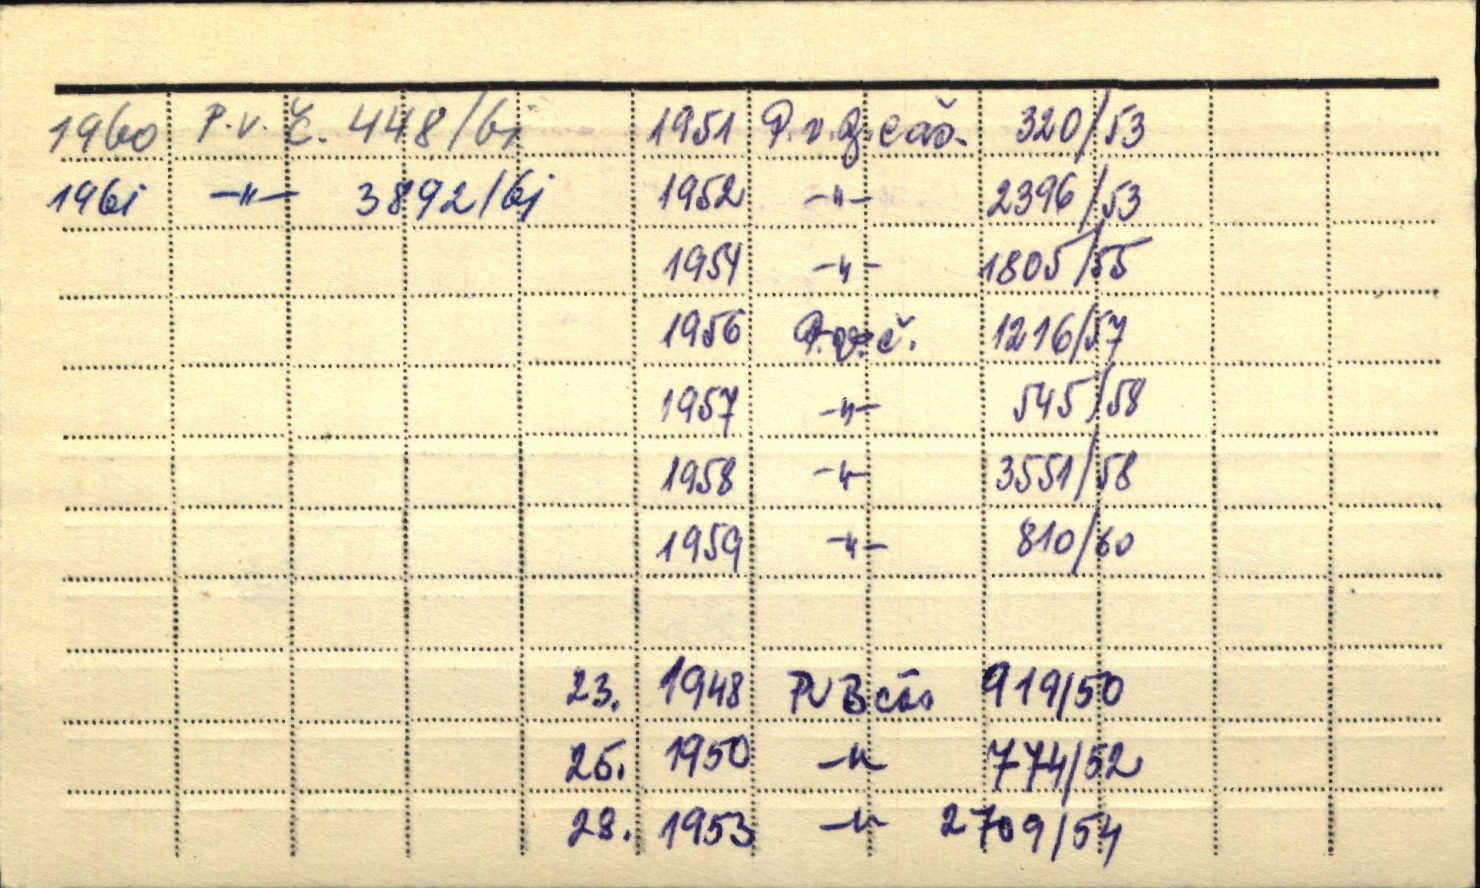 1960 P.v. Č. 448/61 1951 P.v.B.čas. 320/53
1961 -"- 3892/61 1952 -"- 2396/53
1954 -"- 1805/55
1956 P.v.č. 1216/57
1957 -"- 545/58
1958 -"- 3551/58
1959 -"- 810/60
23. 1948 PVB čas 919/50
25. 1950 -"- 774/52
28. 1953 -"- 2709/54